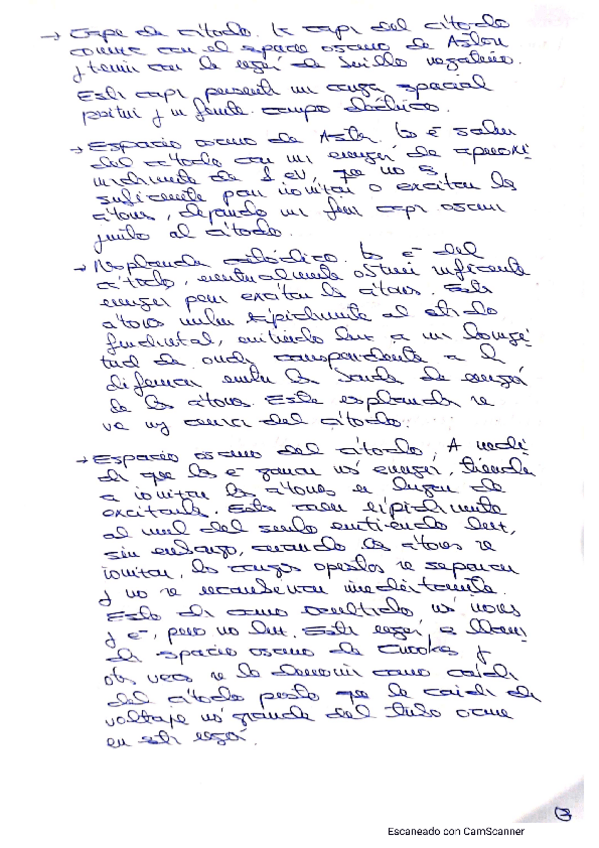 → Capa de cátodo. La capa del cátodo
comienza con el espacio oscuro de Aston
y termina con la región de brillo negativo.
Esta capa presenta un carga espacial
positiva y un fuerte campo eléctrico.
→ Espacio oscuro de Aston. Los e⁻ salen
del cátodo con una energía de aproxi-
madamente de 1 eV, que no es
suficiente para ionizar o excitar los
átomos, dejando una fina capa oscura
junto al cátodo.
→ Resplandor catódico. Los e⁻ del
cátodo, eventualmente obtienen suficiente
energía para excitar los átomos. Estos
átomos vuelven rápidamente al estado
fundamental, emitiendo luz a una longi-
tud de onda correspondiente a la
diferencia entre las bandas de energía
de los átomos. Este resplandor se
ve muy cerca del cátodo.
→ Espacio oscuro del cátodo, A medi-
da que los e⁻ ganan más energía, tienden
a ionizar los átomos en lugar de
excitarlos. Estos caen rápidamente
al nivel del suelo emitiendo luz,
sin embargo, cuando los átomos se
ionizan, las cargas opuestas se separan
y no se recombinan inmediatamente.
Esto da como resultado más iones
y e⁻, pero no luz. Esta región, se llama
de espacio oscuro de Crookes y
otras veces se lo denomina como caída
del cátodo puesto que la caída de
voltaje más grande del tubo ocurre
en esta región.
7
Escaneado con CamScanner